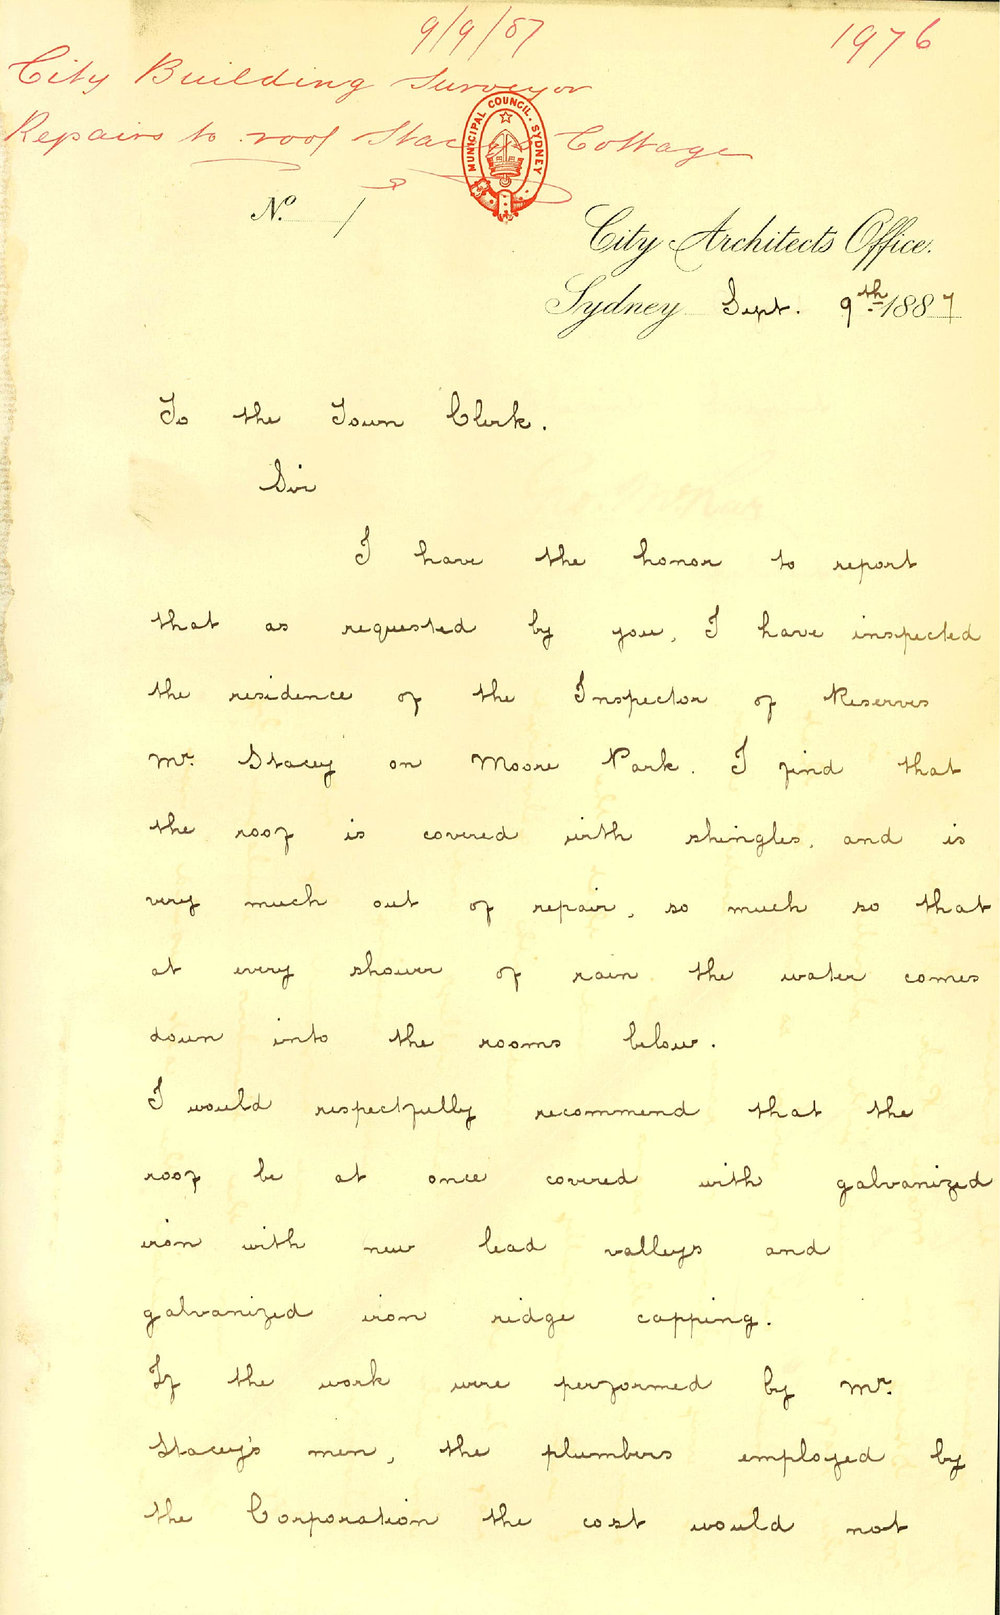 9/9/87
1976
City Building Surveyor
Repairs to roof Stacey's Cottage
MUNICIPAL COUNCIL. SYDNEY
No. 1
City Architects Office.
Sydney Sept. 9th 1887
To the Town Clerk.
Sir
I have the honor to report
that as requested by you, I have inspected
the residence of the Inspector of Reserves
Mr. Stacey on Moore Park. I find that
the roof is covered with shingles, and is
very much out of repair, so much so that
at every shower of rain the water comes
down into the rooms below.
I would respectfully recommend that the
roof be at once covered with galvanized
iron with new lead valleys and
galvanized iron ridge capping.
If the work were performed by Mr.
Stacey's men, the plumbers employed by
the Corporation the cost would not